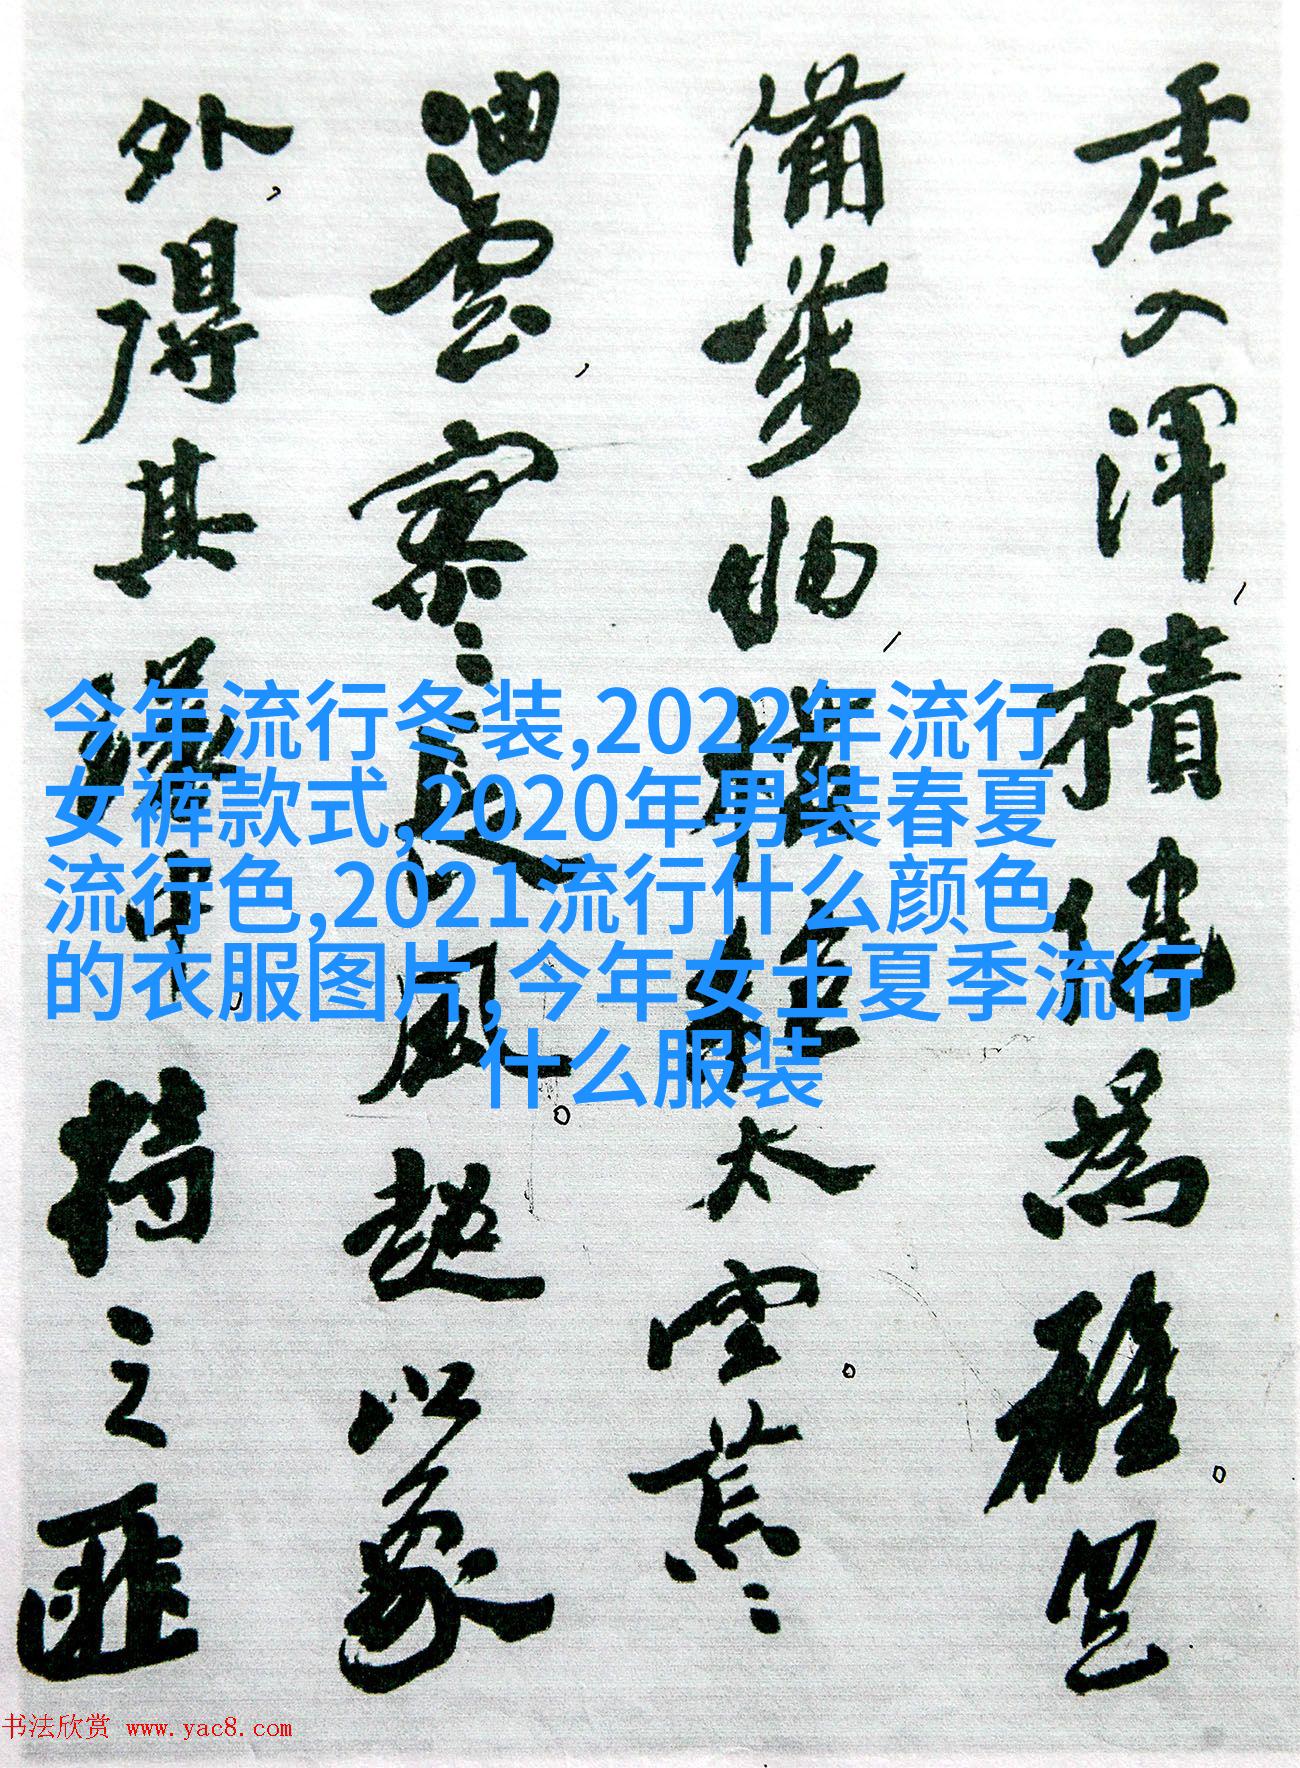 虛入渾，積健為雄。具
備萬物，橫絕太空。荒〻
油雲，寥〻長風。超以象
外，得其環中，持之匪
今年流行冬装,2022年流行
女裤款式,2020年男装春夏
流行色,2021流行什么颜色
的衣服图片,今年女士夏季流行
什么服装
书法欣赏 www.yac8.com